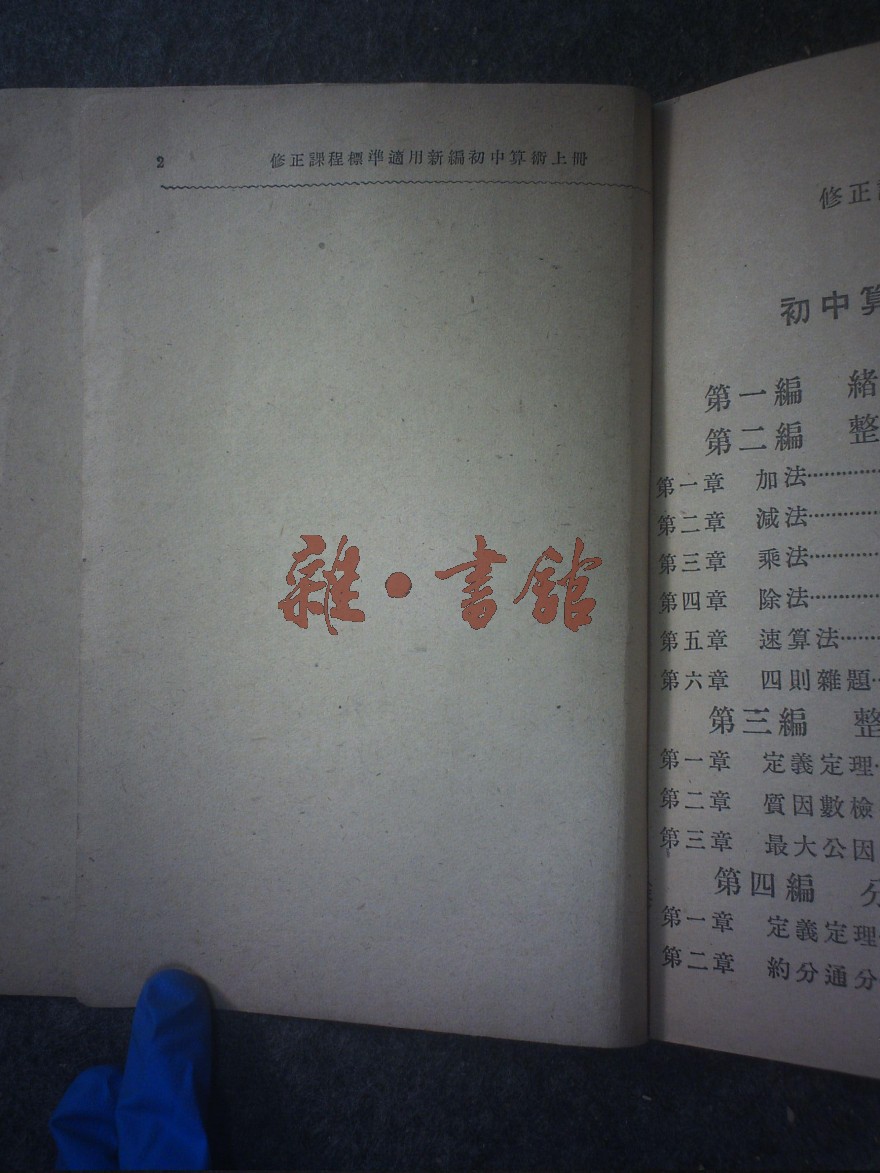 2 修正課程標準適用新編初中算術上冊
雜·書館
修正
初中算
第一編 緒
第二編 整
第一章 加法
第二章 減法
第三章 乘法
第四章 除法
第五章 速算法
第六章 四則雜題
第三編 整
第一章 定義定理
第二章 質因數檢
第三章 最大公因
第四編 分
第一章 定義定理
第二章 約分通分